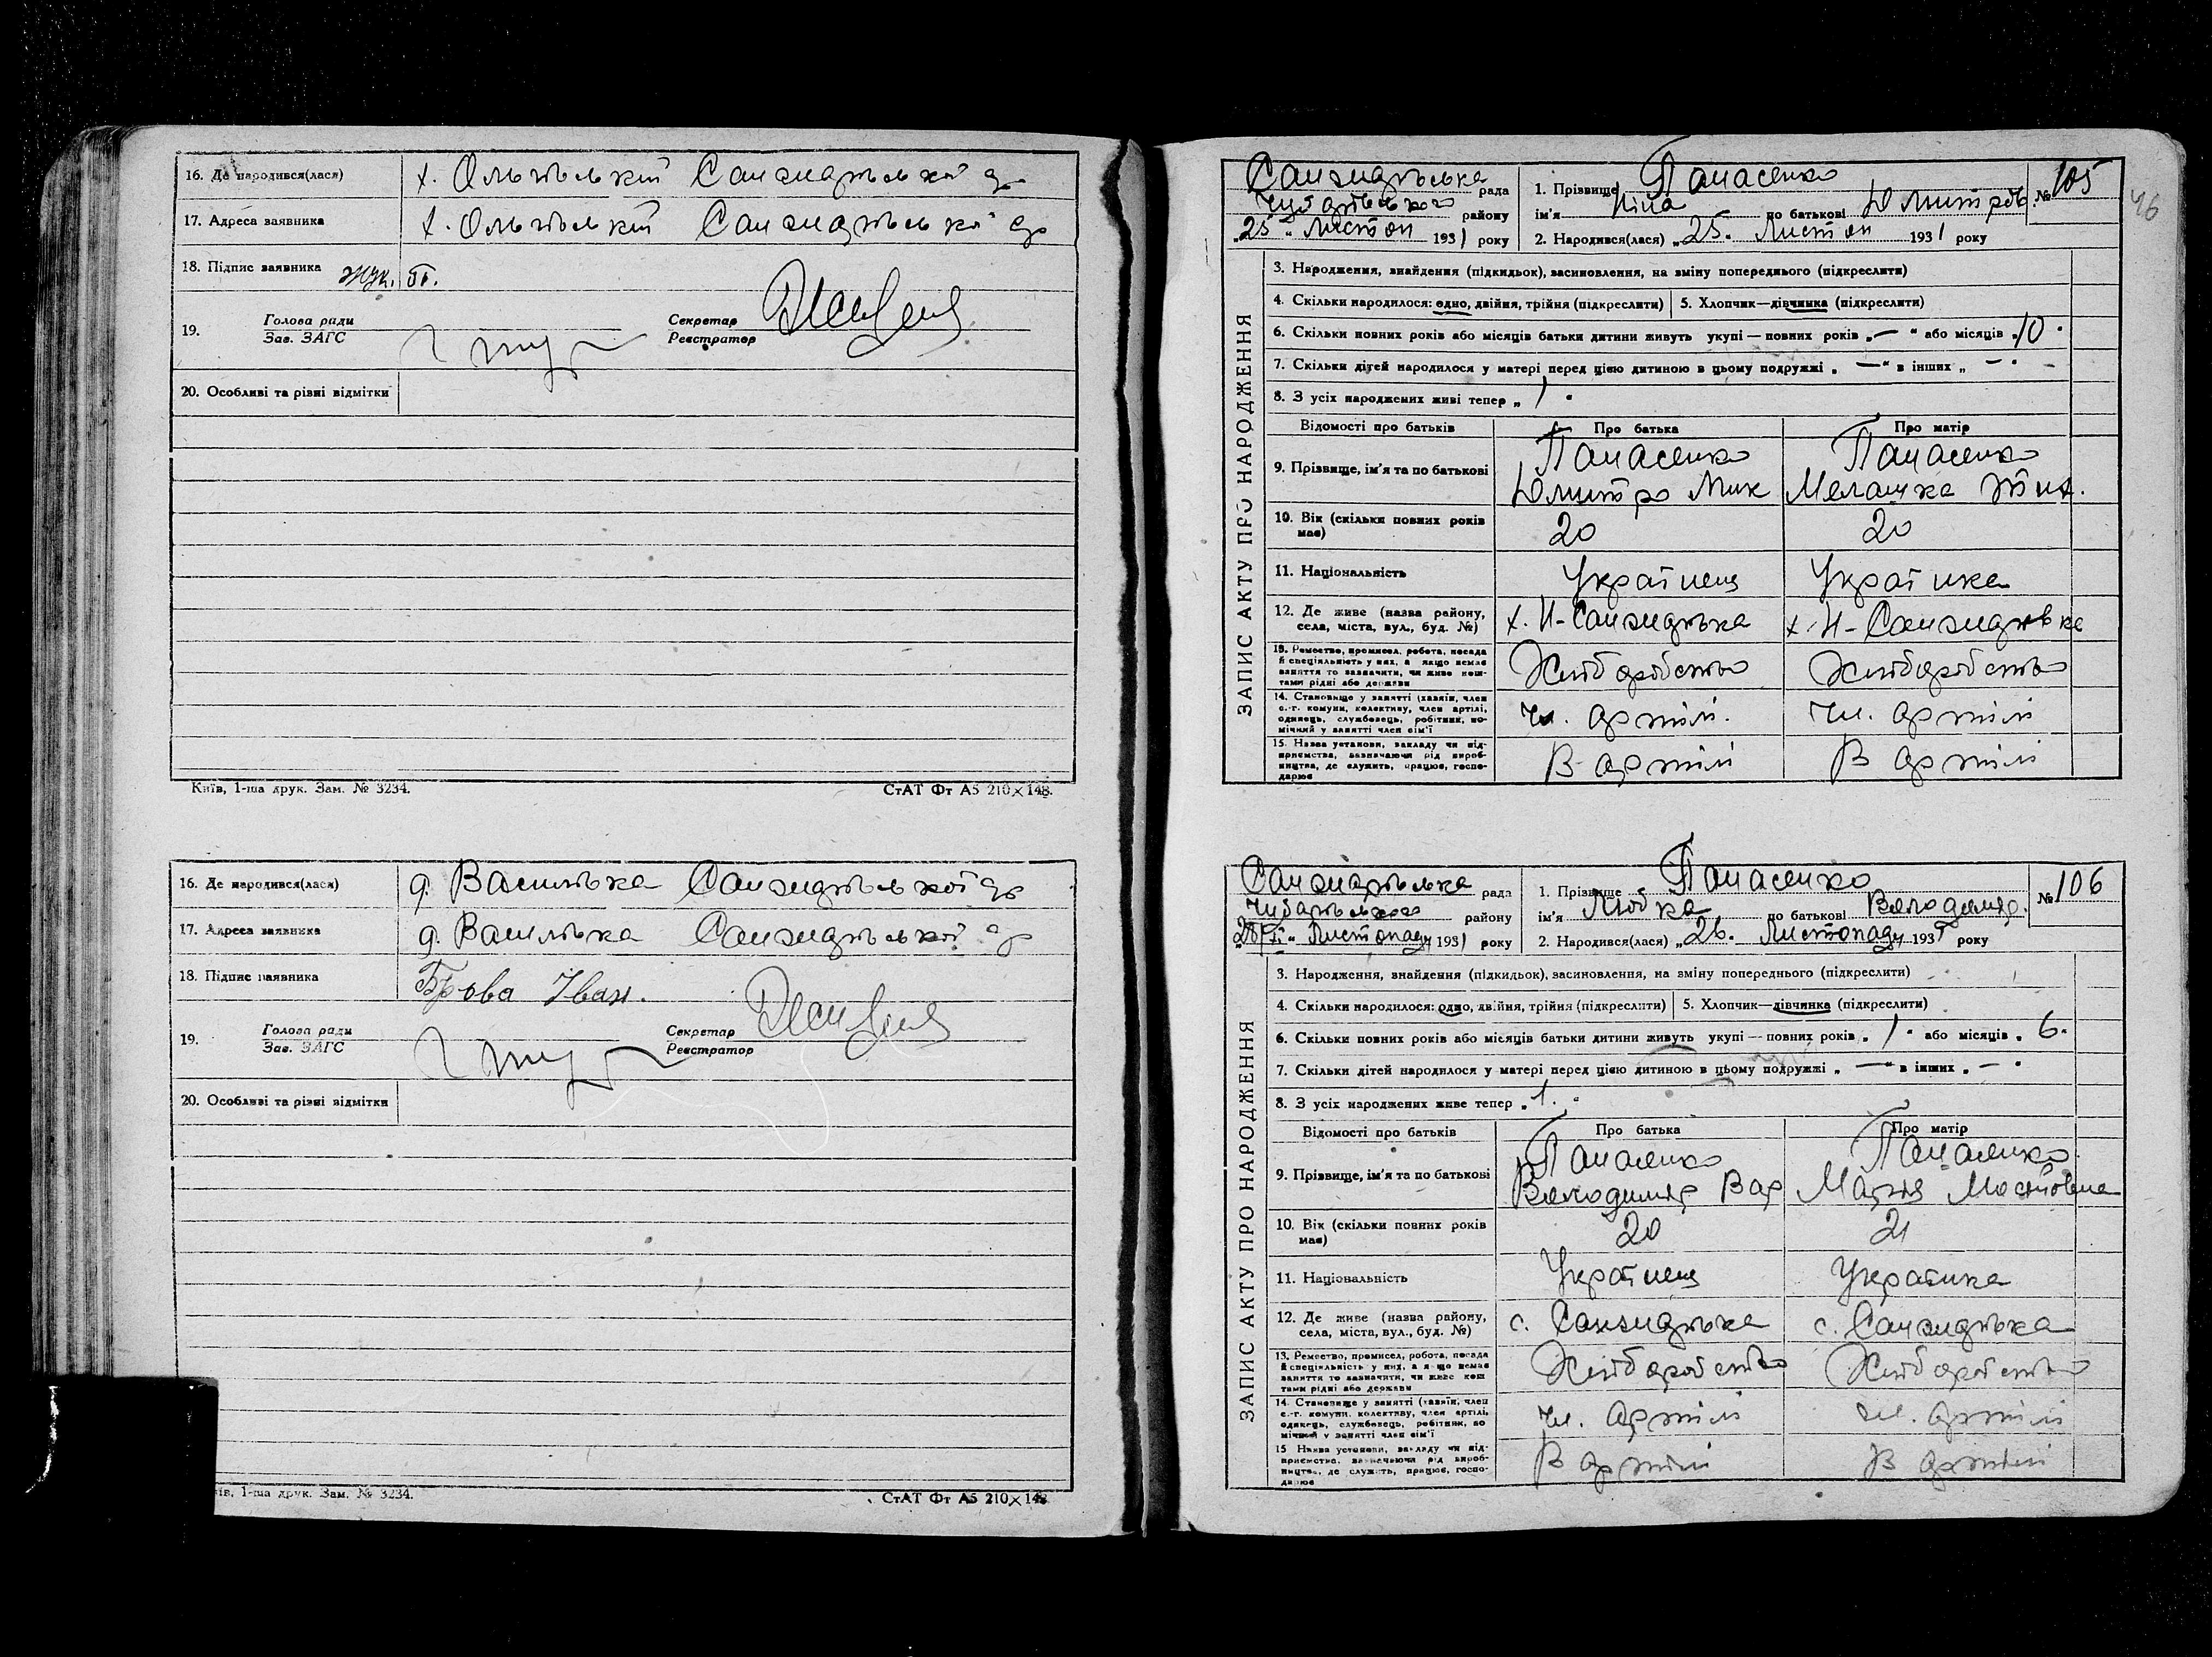 16. Де народився(лася)
х. Ольгівький Санжарівської
17. Адреса заявника
х. Ольгівький Санжарівської
18. Підпис заявника Жук. П.
19. Голова ради
Зав. ЗАГС
Секретар
Реєстратор
20. Особливі та різні відмітки
Київ, 1-ша друк. Зам. № 3234.
СтАТ Фт А5 210×148.
16. Де народився(лася)
д. Василівка Санжарівської
17. Адреса заявника
д. Василівка Санжарівської
18. Підпис заявника
Брова Іван.
19. Голова ради
Зав. ЗАГС
Секретар
Реєстратор
20. Особливі та різні відмітки
їв, 1-ша друк. Зам. № 3234.
СтАТ Фт А5 210×148
46
ЗАПИС АКТУ ПРО НАРОДЖЕННЯ
Санжарівська рада
Чубарівського району
„25" Листоп 1931 року
1. Прізвище Панасенко
ім'я Ніна по батькові Дмитрів.
2. Народився(лася) „25. Листоп 1931 року
№ 105
3. Народження, знайдення (підкидьок), засиновлення, на зміну попереднього (підкреслити)
4. Скільки народилося: одно, двійня, трійня (підкреслити) 5. Хлопчик—дівчинка (підкреслити)
6. Скільки повних років або місяців батьки дитини живуть укупі — повних років „—" або місяців „10"
7. Скільки дітей народилося у матері перед цією дитиною в цьому подружжі „—" в інших „—"
8. З усіх народжених живі тепер „1"
Відомості про батьків Про батька Про матір
9. Прізвище, ім'я та по батькові
Панасенко Дмитро Мик
Панасенко Мелашка
10. Вік (скільки повних років має)
20 20
11. Національність
Українець Українка
12. Де живе (назва району, села, міста, вул., буд. №)
х. Н-Санжарівка х. Н-Санжарівка
13. Ремество, промисел, робота, посада й спеціяльність у них, а якщо немає заняття то зазначити, чи живе коштами рідні або держави
Хліборобство Хліборобство
14. Становище у занятті (хазяїн, член с.-г. комуни, колективу, член артілі, одинець, службовець, робітник, помічний у занятті член сім'ї
Чл. артілі. Чл. артілі
15. Назва установи, закладу чи підприємства, зазначаючи рід виробництва, де служить, працює, господарює
В артілі В артілі
ЗАПИС АКТУ ПРО НАРОДЖЕННЯ
Санжарівська рада
Чубарівського району
Листопаду 1931 року
1. Прізвище Панасенко
ім'я Любка по батькові Володимир.
2. Народився(лася) „26. Листопаду 1931 року
№ 106
3. Народження, знайдення (підкидьок), засиновлення, на зміну попереднього (підкреслити)
4. Скільки народилося: одно, двійня, трійня (підкреслити) 5. Хлопчик—дівчинка (підкреслити)
6. Скільки повних років або місяців батьки дитини живуть укупі — повних років „1" або місяців „6"
7. Скільки дітей народилося у матері перед цією дитиною в цьому подружжі „—" в інших „—"
8. З усіх народжених живе тепер „1."
Відомості про батьків Про батька Про матір
9. Прізвище, ім'я та по батькові
Панасенко Володимир Вар
Панасенко Марія
10. Вік (скільки повних років має)
20 21
11. Національність
Українець Українка
12. Де живе (назва району, села, міста, вул., буд. №)
с. Санжарівка с. Санжарівка
13. Ремество, промисел, робота, посада й спеціяльність у них, а якщо немає заняття то зазначити, чи живе коштами рідні або держави
Хліборобство Хліборобство
14. Становище у занятті (хазяїн, член с.-г. комуни, колективу, член артілі, одинець, службовець, робітник, помічний у занятті член сім'ї
Чл. артілі Чл. артілі
15 Назва установи, закладу чи підприємства, зазначаючи рід виробництва, де служить, працює, господарює
В артілі В артілі